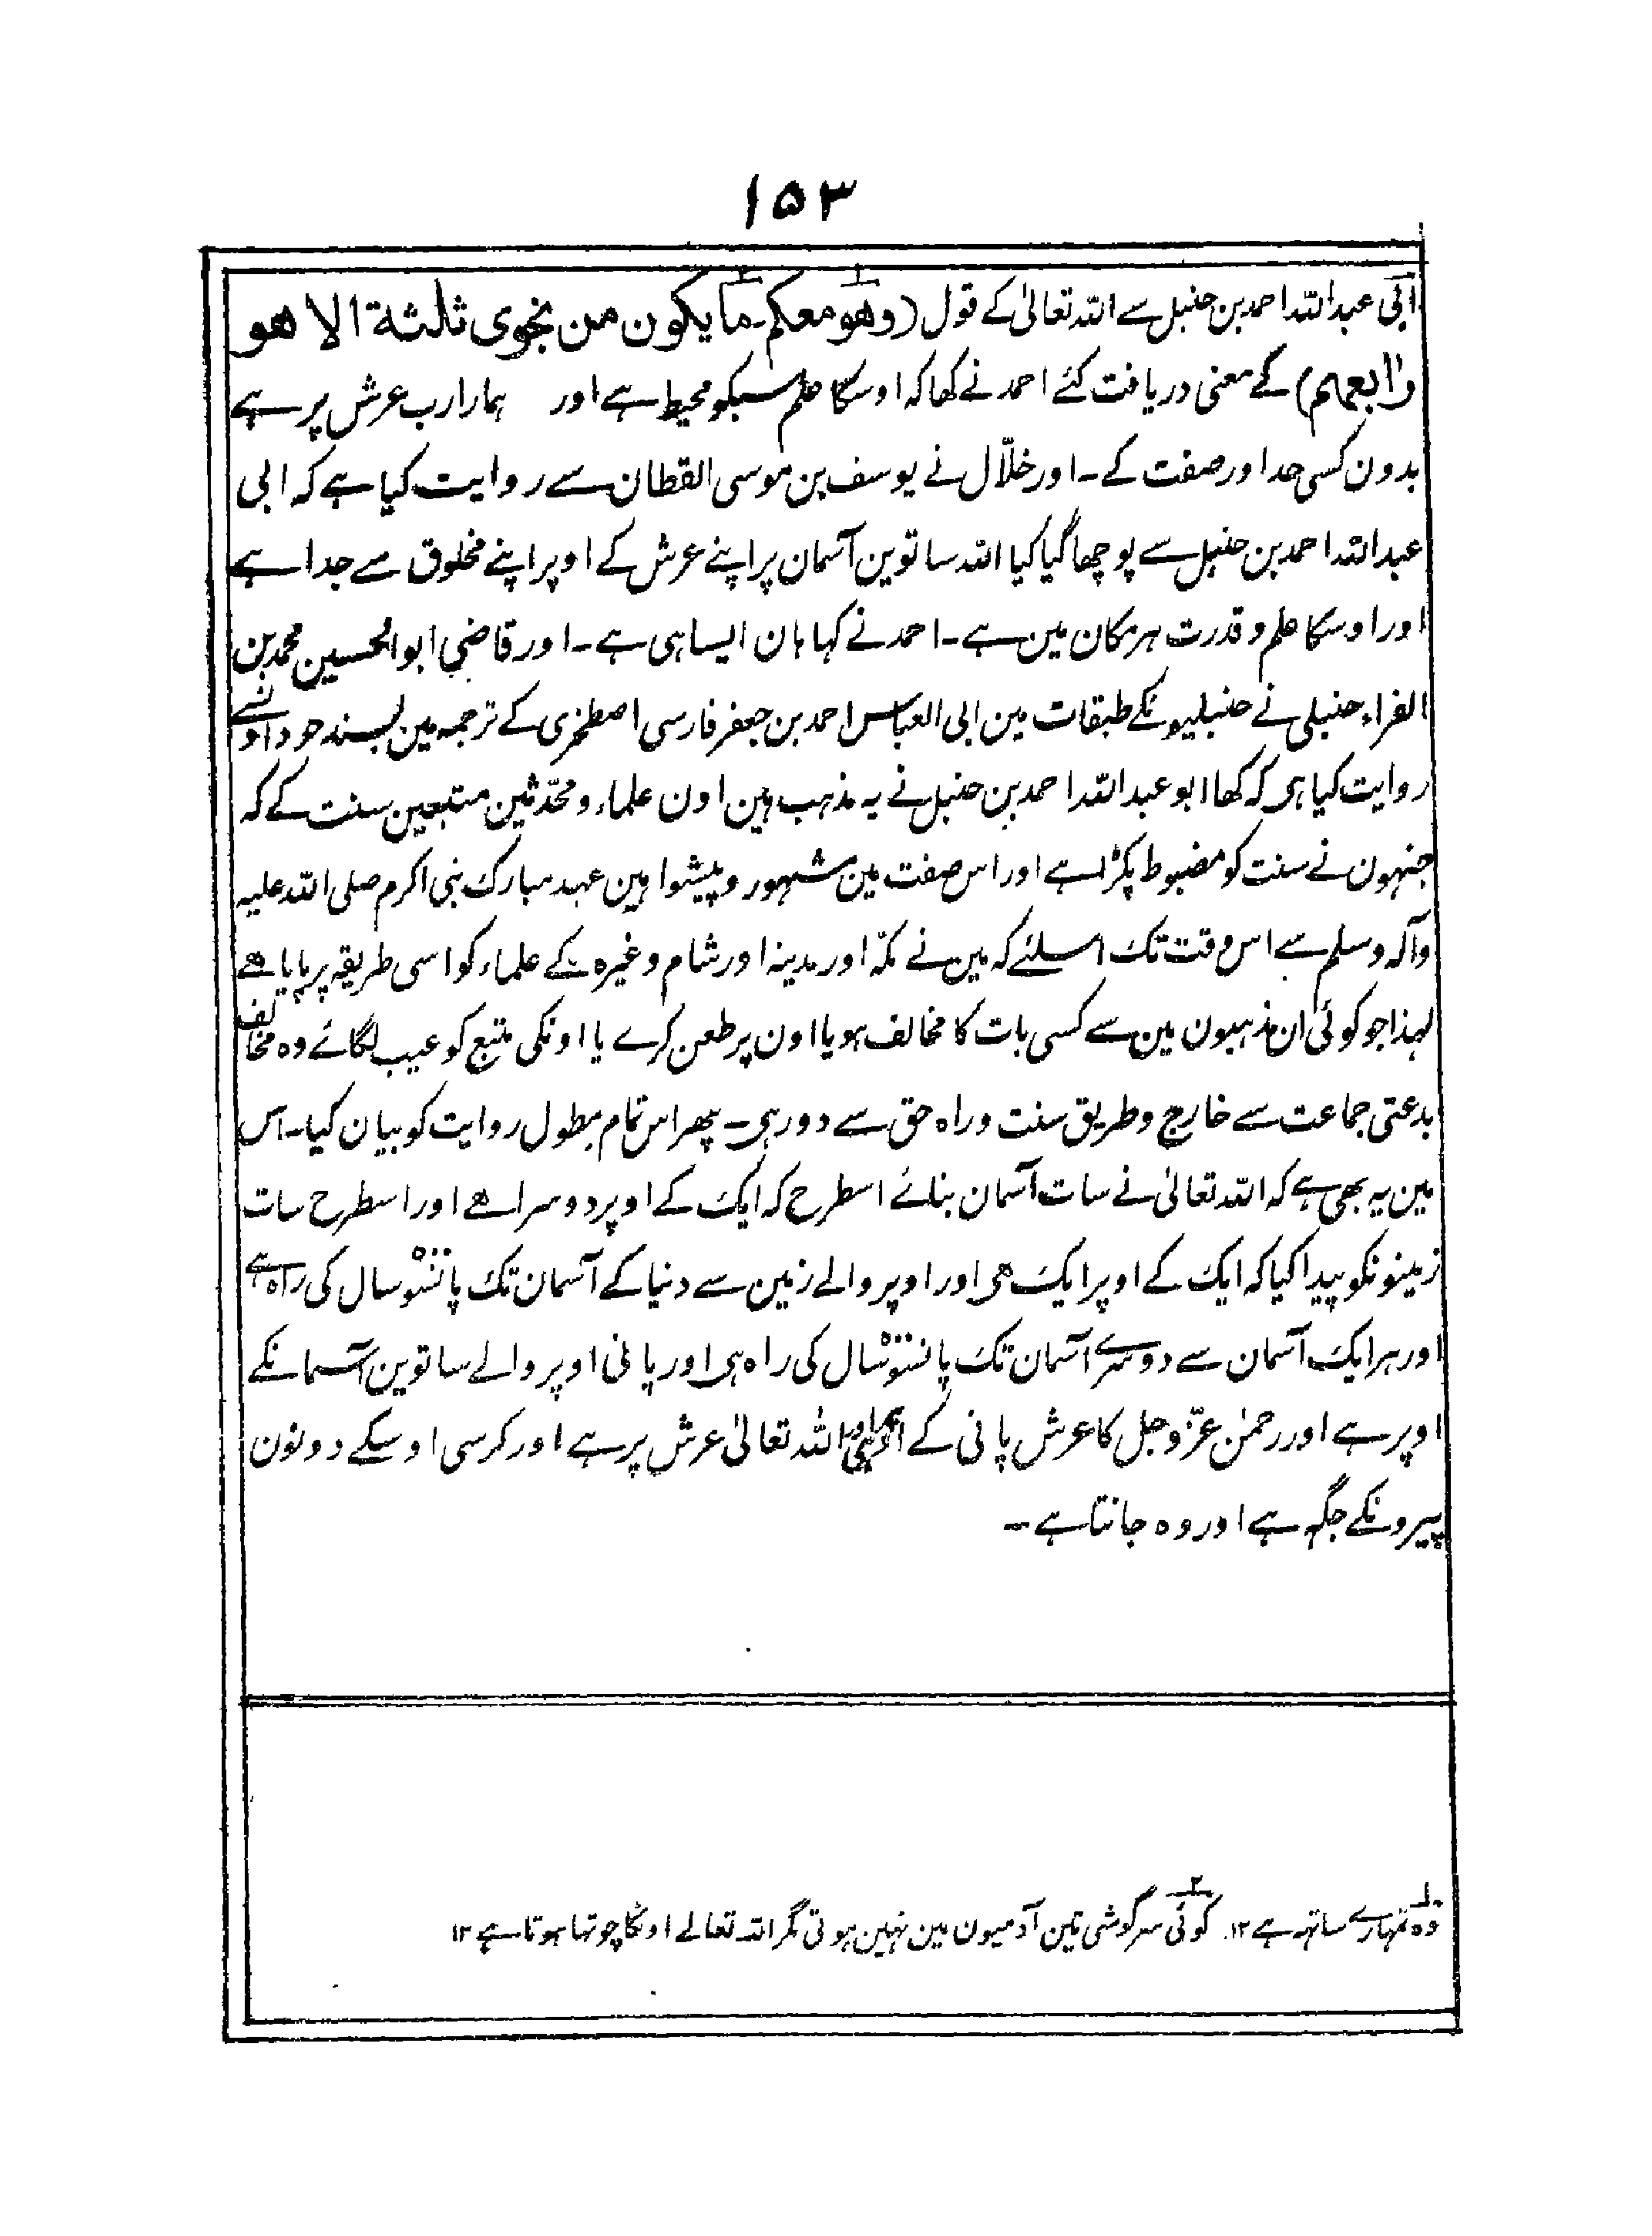 ۱۵۳
ابی عبد اللہ احمد بن حنبل سے اللہ تعالیٰ کے قول (وھو معکم۔ ما یکون من نجوی ثلثة الا ھو
رابعھم) کے معنی دریافت کئے احمد نے کھا کہ اوسکا علم سبکو محیط ہے اور ہمارا رب عرش پر ہے
بدون کسی حد اور صفت کے۔ اور خلّال نے یوسف بن موسی القطان سے روایت کیا ہے کہ ابی
عبد اللہ احمد بن حنبل سے پوچھا گیا کیا اللہ ساتوین آسمان پر اپنے عرش کے اوپر اپنے مخلوق سے جدا ہے
اور اوسکا علم و قدرت ہر مکان مین ہے۔ احمد نے کہا ہان ایسا ہی ہے۔ اور قاضی ابو الحسین محمد بن
الفراء حنبلی نے حنبلیونکے طبقات مین ابی العباس احمد بن جعفر فارسی اصطخری کے ترجمہ مین بسند خود اونسے
روایت کیا ہی کہ کھا ابو عبد اللہ احمد بن حنبل نے یہ مذہب ہین اون علماء و محدّثین متبعین سنت کے کہ
جنہون نے سنت کو مضبوط پکڑا ہے اور اس صفت مین مشہور و پیشوا ہین عہد مبارک نبی اکرم صلی اللہ علیہ
وآلہ وسلم سے اس وقت تک اسلئے کہ مین نے مکّہ اور مدینہ اور شام وغیرہ کے علماء کو اسی طریقہ پر پایا ھے
لہذا جو کوئی ان مذہبون مین سے کسی بات کا مخالف ہو یا اون پر طعن کرے یا اونکی متبع کو عیب لگائے وہ مخالف
بدعتی جماعت سے خارج و طریق سنت و راہ حق سے دور ہی۔ پھر اس تمام مطول روایت کو بیان کیا۔ اس
مین یہ بھی ہے کہ اللہ تعالیٰ نے سات آسمان بنائے اسطرح کہ ایک کے اوپر دوسرا ھے اور اسطرح سات
زمینونکو پیدا کیا کہ ایک کے اوپر ایک ھی اور اوپر والے زمین سے دنیا کے آسمان تک پانسو سال کی راہ ہے
اور ہر ایک آسمان سے دوسرے آسمان تک پانسو سال کی راہ ہی اور پانی اوپر والے ساتوین آسمانکے
اوپر ہے اور رحمٰن عزّ وجل کا عرش پانی کے اللہ تعالیٰ عرش پر ہے اور کرسی اوسکے دونون
پیرونکے جگہ ہے اور وہ جانتا ہے۔
۱؎ وہ تمہارے ساتھ ہے ۱۲۔ ۲؎ کوئی سرگوشی تین آدمیون مین نہین ہوتی مگر اللہ تعالے اونکا چوتھا ہوتا ہے ۱۲